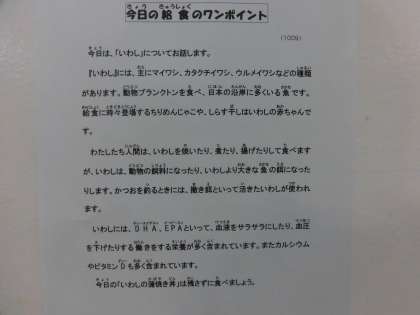 今日の給食のワンポイント
(1009)
今日は、「いわし」についてお話します。
『いわし』には、主にマイワシ、カタクチイワシ、ウルメイワシなどの種類
があります。動物プランクトンを食べ、日本の沿岸に多くいる魚です。
給食に時々登場するちりめんじゃこや、しらす干しはいわしの赤ちゃんで
す。
わたしたち人間は、いわしを使いたり、煮たり、揚げたりして食べます
が、いわしは、動物の飼料になったり、いわしより大きな魚の餌になった
りします。かつおを釣るときには、撒き餌といって活きたいわしが使われ
ます。
いわしには、DHA、EPAといって、血液をサラサラにしたり、血圧
を下げたりする働きをする栄養が多く含まれています。またカルシウム
やビタミンDも多く含まれています。
今日の「いわしの蒲焼き丼」は残さずに食べましょう。